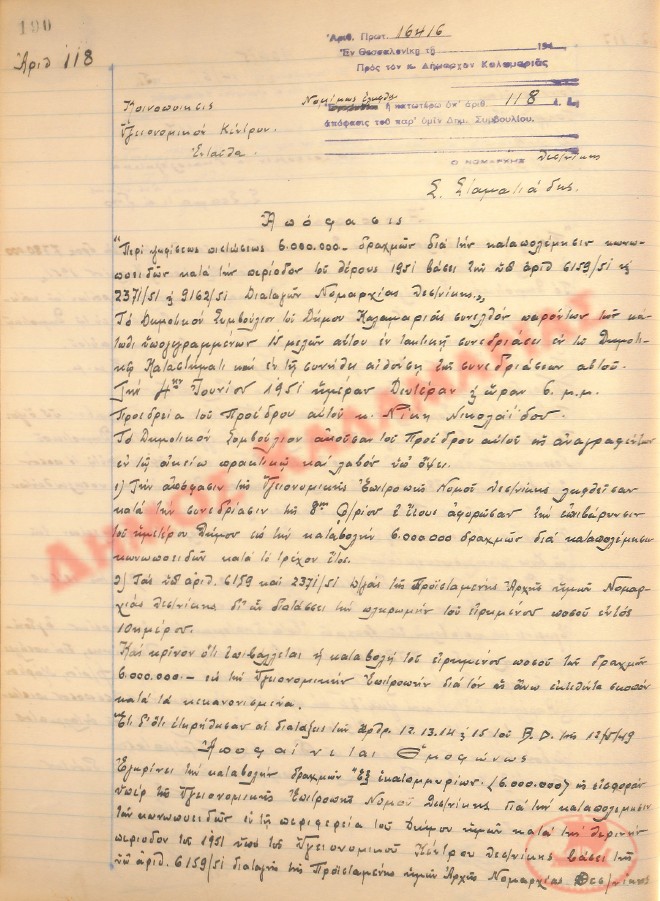 100
Ἀριθ 118
Ἀριθ. Πρωτ. 16416
Ἐν Θεσσαλονίκῃ τῇ 194
Πρὸς τὸν κ. Δήμαρχον Καλαμαριᾶς
Κοινοποίησις
Ὑγειονομικὸν Κέντρον
Ἐνταῦθα.
Νομίμως ἐλήφθη
ἡ κατωτέρω ὑπ' ἀριθ. 118
ἀπόφασις τοῦ παρ' ὑμῖν Δημ. Συμβουλίου.
Ο ΝΟΜΑΡΧΗΣ Θεσ/νίκης
Σ. Σιαμαλιάδης.
Ἀπόφασις
"Περὶ ψηφίσεως πιστώσεως 6.000.000 – δραχμῶν διὰ τὴν καταπολέμησιν κωνω-
ποειδῶν κατὰ τὴν περίοδον τοῦ θέρους 1951 βάσει τῆς ὑπ' ἀριθ 6159/51 ἢ
2371/51 ἢ 9162/51 Διαταγῶν Νομαρχίας Θεσ/νίκης.„
Τὸ Δημοτικὸν Συμβούλιον τοῦ Δήμου Καλαμαριᾶς συνελθὸν παρόντων τῶν κά-
τωθι ὑπογεγραμμένων 15 μελῶν αὐτοῦ ἐν τακτικῇ συνεδριάσει ἐν τῷ Δημοτι-
κῷ Καταστήματι καὶ ἐν τῇ συνήθει αἰθούσῃ τῆς συνεδριάσεων αὐτοῦ.
Τὴν 4ην Ἰουνίου 1951 ἡμέραν Δευτέραν ἢ ὥραν 6 μ.μ.
Προεδρεία τοῦ Προέδρου αὐτοῦ κ. Νίκη Νικολαΐδου.
Τὸ Δημοτικὸν Συμβούλιον ἀκοῦσαν τοῦ Προέδρου αὐτοῦ ὡς ἀναγράφεται
ἐν τῷ οἰκείῳ πρακτικῷ καὶ λαβὸν ὑπ' ὄψει.
1) Τὴν ἀπόφασιν τῆς Ὑγειονομικῆς Ἐπιτροπῆς Νομοῦ Θεσ/νίκης ληφθεῖσαν
κατὰ τὴν συνεδρίασιν τῆς 8ης ἔτους ἀφορῶσαν τὴν ἐπιβάρυνσιν
τοῦ ἡμετέρου Δήμου εἰς τὴν καταβολὴν 6.000.000 δραχμῶν διὰ καταπολέμησιν
κωνωποειδῶν κατὰ τὸ τρέχον ἔτος.
2) Τὰς ὑπ' ἀριθ. 6159 καὶ 2371/51 Δ/γὰς τῆς Προϊσταμένης Ἀρχῆς ἡμῶν Νομαρ-
χίας Θεσ/νίκης δι' ὧν διατάσσει τὴν πληρωμὴν τοῦ εἰρημένου ποσοῦ ἐντὸς
10ημέρου.
Καὶ κρῖνον ὅτι ἐπιβάλλεται ἡ καταβολὴ τοῦ εἰρημένου ποσοῦ τῶν δραχμῶν
6.000.000 – εἰς τὴν Ὑγειονομικὴν Ἐπιτροπὴν διὰ τὸν ὡς ἄνω ἐκτεθέντα σκοπὸν
κατὰ τὰ κεκανονισμένα.
Ἔτι δ' ὅτι ἐτηρήθησαν αἱ διατάξεις τῶν ἄρθρ. 12.13.14 ἢ 15 τοῦ Β.Δ. τῆς 49
Ἀποφαίνεται Ὁμοφώνως
Ἐγκρίνει τὴν καταβολὴν δραχμῶν "Ἓξ ἑκατομμυρίων. (6.000.000) ὡς εἰσφορὰν
ὑπὲρ τῆς Ὑγειονομικῆς Ἐπιτροπῆς Νομοῦ Θεσ/νίκης διὰ τὴν καταπολέμησιν
τῶν κωνωποειδῶν ἐν τῇ περιφερείᾳ τοῦ Δήμου ἡμῶν κατὰ τὴν θερινὴν
περίοδον τοῦ 1951 ὑπὸ τοῦ Ὑγειονομικοῦ Κέντρου Θεσ/νίκης βάσει τῆς
ὑπ' ἀριθ. 6159/51 διαταγῆς τῆς Προϊσταμένης ἡμῶν Ἀρχῆς Νομαρχίας Θεσ/νίκης
ΔΗΜΟΣ ΚΑΛΑΜΑΡΙΑΣ